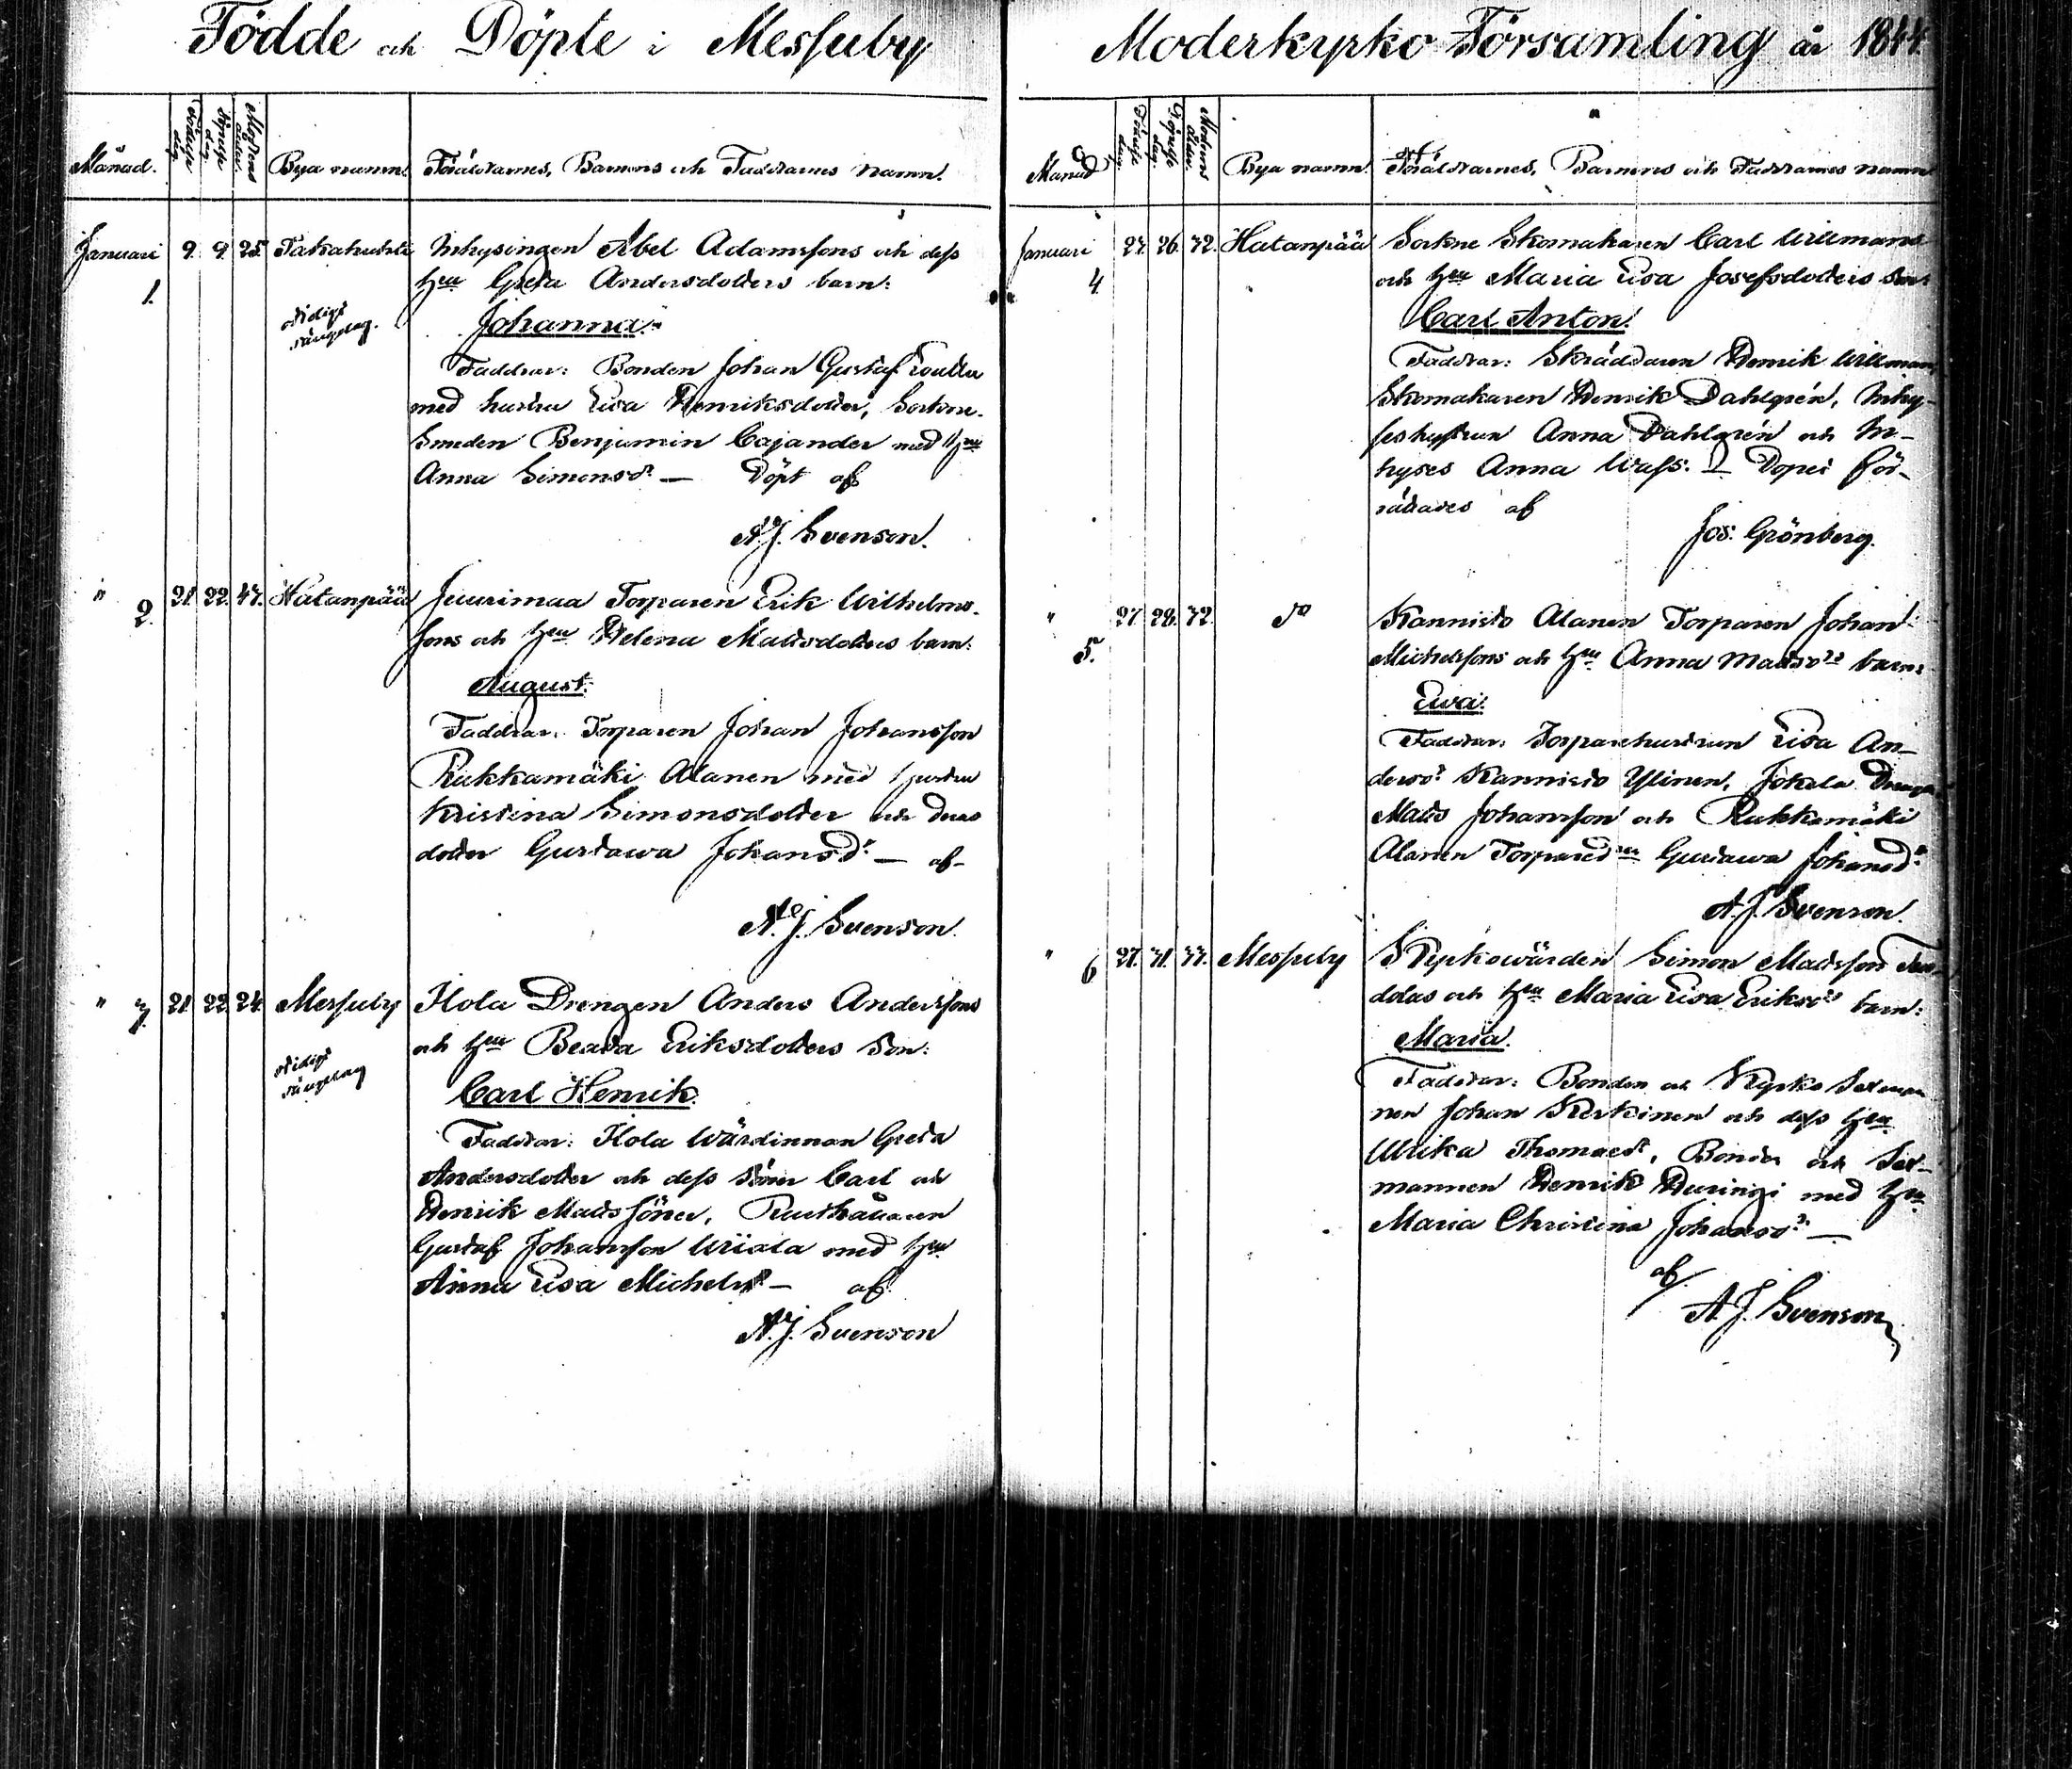 Födde och Döpte i Messuby
Månad. Födelse dag. Döpelse dag. Modrens ålder. Bya namn. Föräldrarnes, Barnens och Faddrarnes namn.
Januari 9. 9. 25. Takahuhti Inhysingen Abel Adamssons och dess
1. hu Greta Andersdotters barn:
Johanna.
Faddrar: Bonden Johan Gustaf
med hustru Lisa Henriksdotter, Sockne-
Smeden Benjamin Cajander med hu
Anna Simonsdr — Döpt af
A. J. Svenson.
" 2. 21. 22. 47. Hatanpää Juurimaa Torparen Erik Wilhelms-
sons och hu Helena Matsdotters barn:
August.
Faddrar: Torparen Johan Johansson
Rukkamäki Alanen med hustru
Kristina Simonsdotter och deras
dotter Gustawa Johansdr — af
A. J. Svenson.
" 3. 21. 22. 24. Messuby Ilola Drengen Anders Anderssons
och hu Beata Eriksdotters son:
Carl Henrik.
Faddrar: Ilola Wärdinnan Greta
Andersdotter och dess söner Carl och
Henrik Mats söner,
Gustaf Johansson med hu
Anna Lisa Michelsdr — af
A. J. Svenson
Moderkyrko Församling år 1844.
Månad Födelse dag. Döpelse dag. Modrens ålder. Bya namn. Föräldrarnes, Barnens och Faddrarnes namn
Januari 26. 32. Hatanpää Sockne Skomakaren Carl Willmans
4. och hu Maria Lisa Josefsdotters son:
Carl Anton.
Faddrar: Skräddaren Henrik Willman,
Skomakaren Henrik Dahlgrén, Inhy-
ses hustrun Anna Dahlgrén och In-
hyses Anna Wass. — Dopet för-
rättades af
Jos. Grönberg.
" 5. 27. 28. 32. do Kannisto Alanen Torparen Johan
Michelssons och hu Anna Matsdrs barn:
Ewa.
Faddrar: Torparehustrun Lisa An-
dersdr Kannisto Ylinen, Jokela Dreng
Mats Johansson och Rukkamäki
Alanen Torpared:n Gustawa Johansdr
A. J. Svenson.
" 6 27. 31. 33. Messuby Kyrkowärden Simon Matsson
dolas och hu Maria Lisa Eriksdrs barn:
Maria.
Faddrar: Bonden och Kyrko Sexman-
nen Johan Kerkinen och dess hu
Ulrika Thomasdr, Bonden och Sex-
mannen Henrik med hu
Maria Christina Johansdr —
af
A. J. Svenson